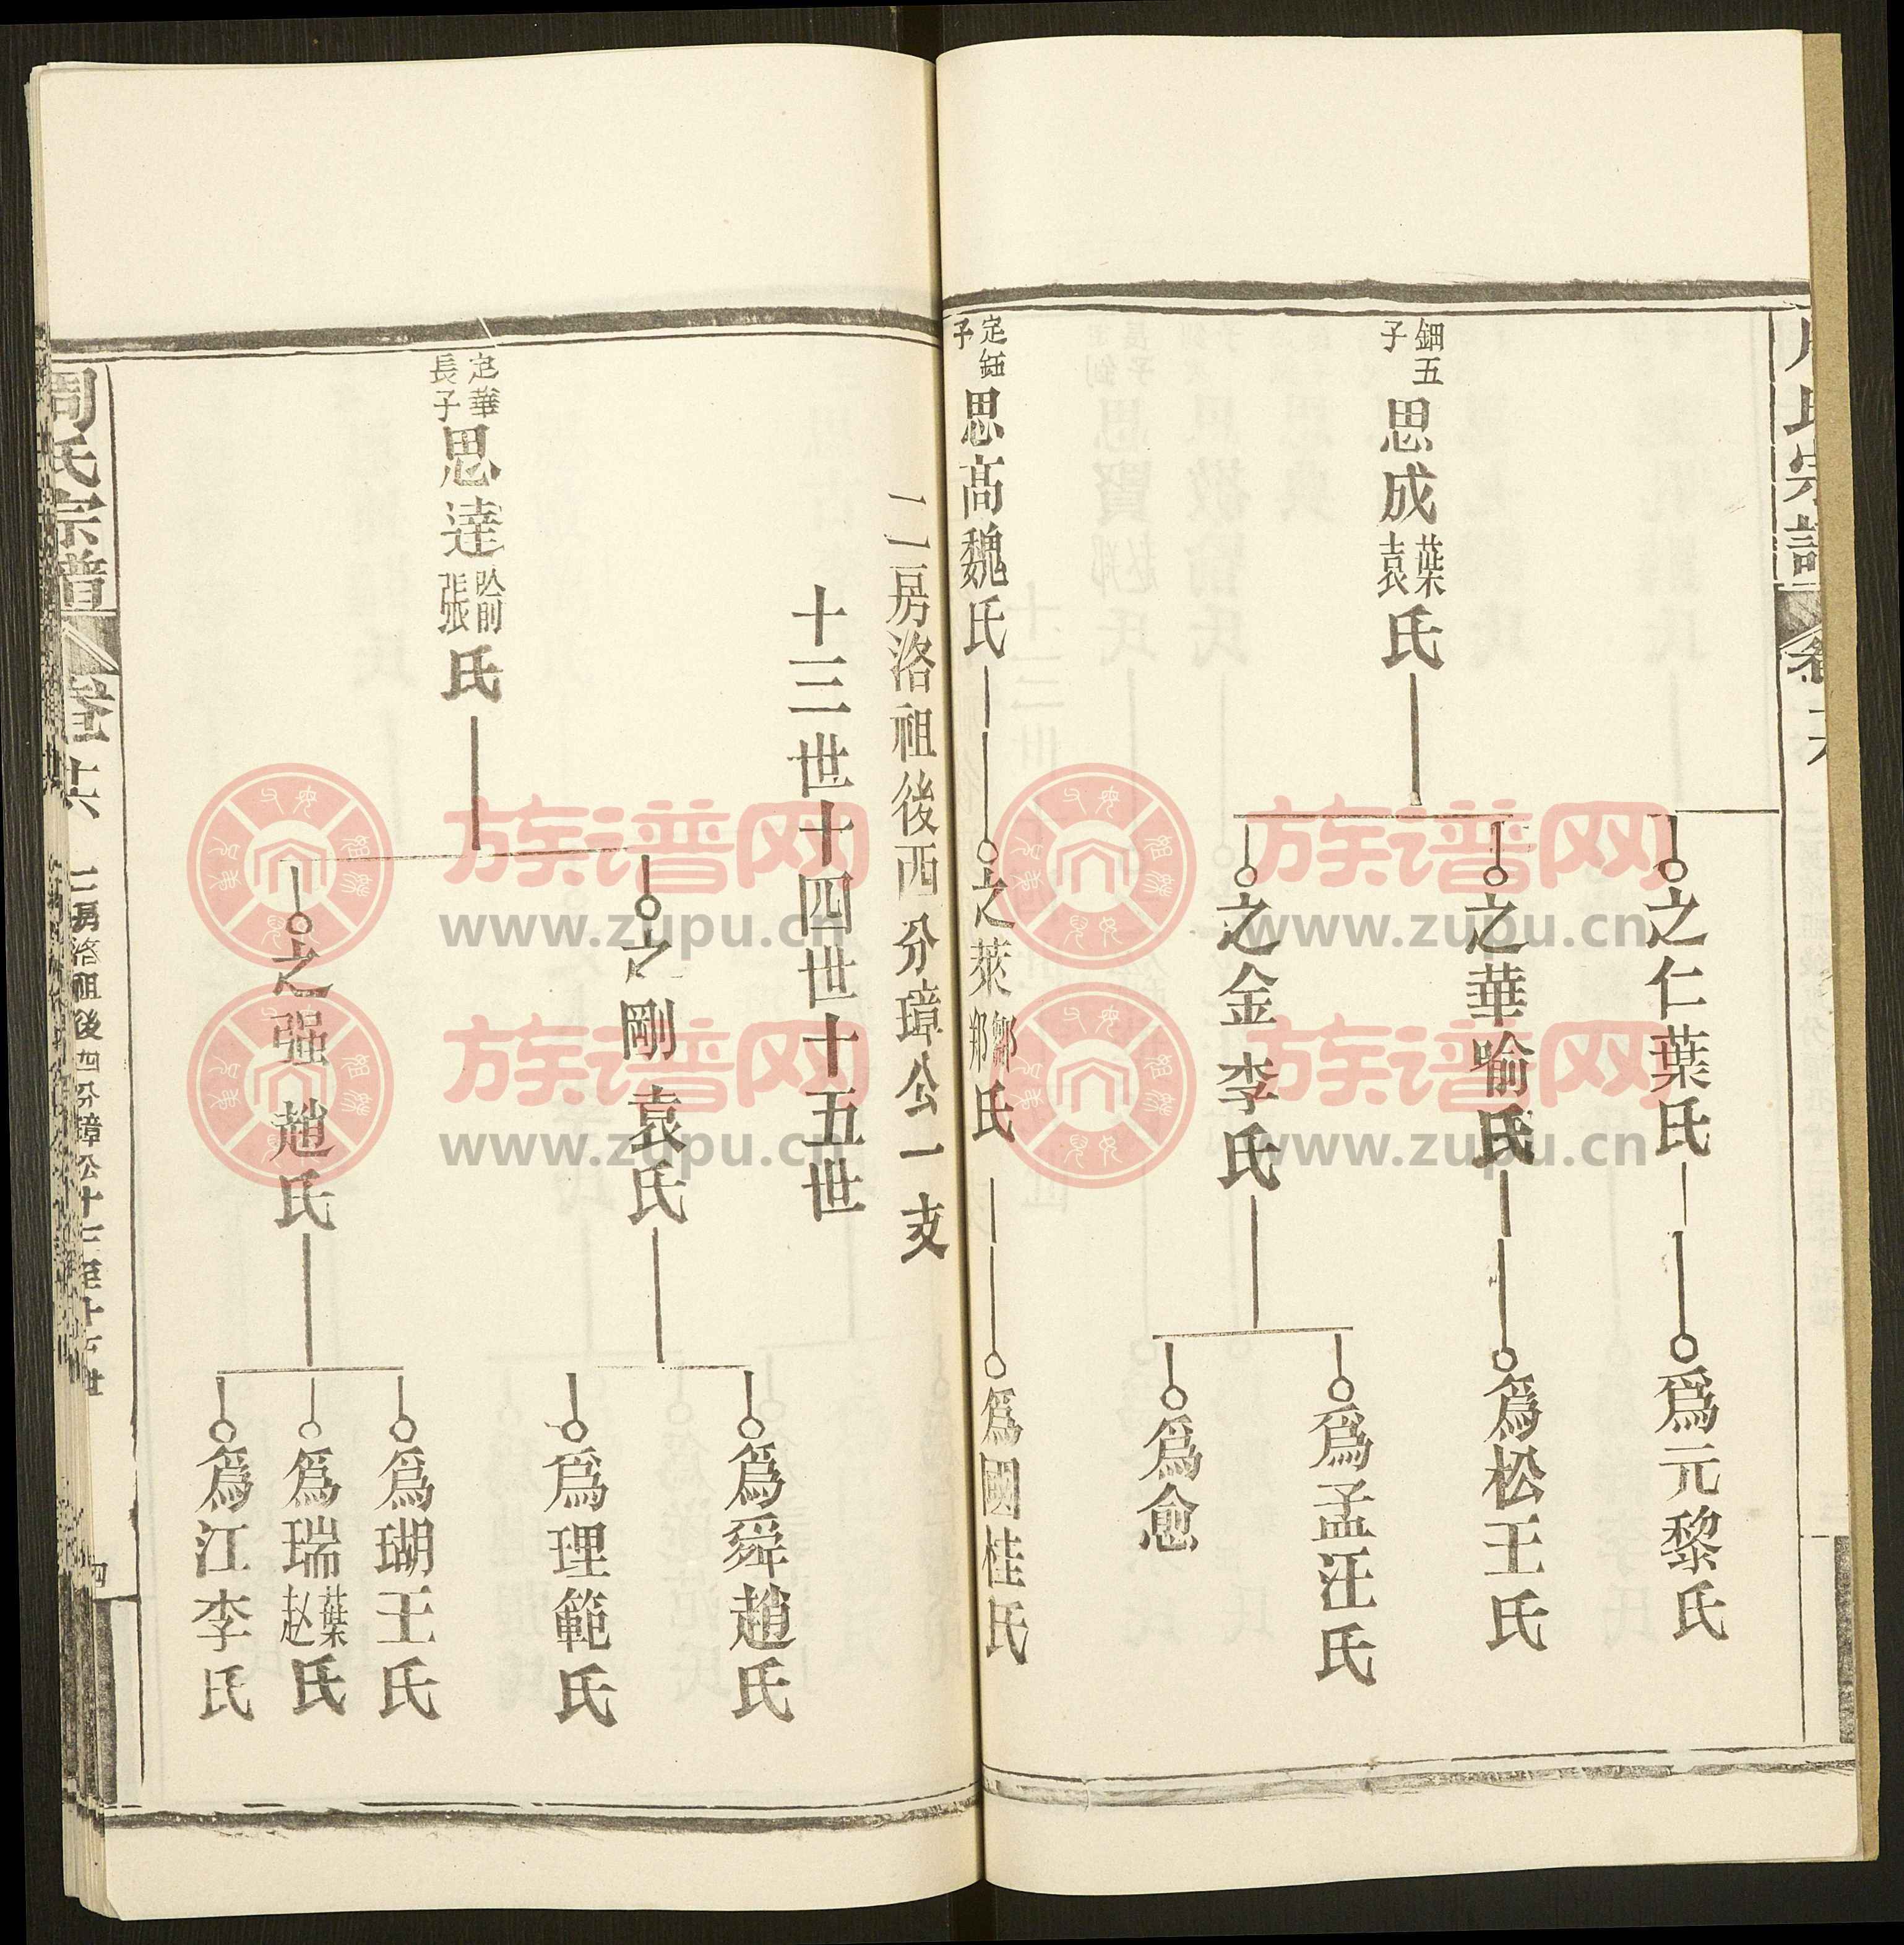 周氏宗譜
鈿五子
思成葉袁氏
之仁葉氏
爲元黎氏
之華喻氏
爲松王氏
之金李氏
爲孟汪氏
爲愈
定鈺子
思高魏氏
之萊鄭氏
爲國桂氏
二房洛祖後西分璋公一支
十三世十四世十五世
定華長子
思達喻張氏
之剛袁氏
爲舜趙氏
爲理範氏
之强趙氏
爲瑚王氏
爲瑞葉赵氏
爲江李氏
周氏宗譜
卷廿六
二房洛祖後四分璋公
四
族谱网
www.zupu.cn
族谱网
www.zupu.cn
族谱网
www.zupu.cn
族谱网
www.zupu.cn